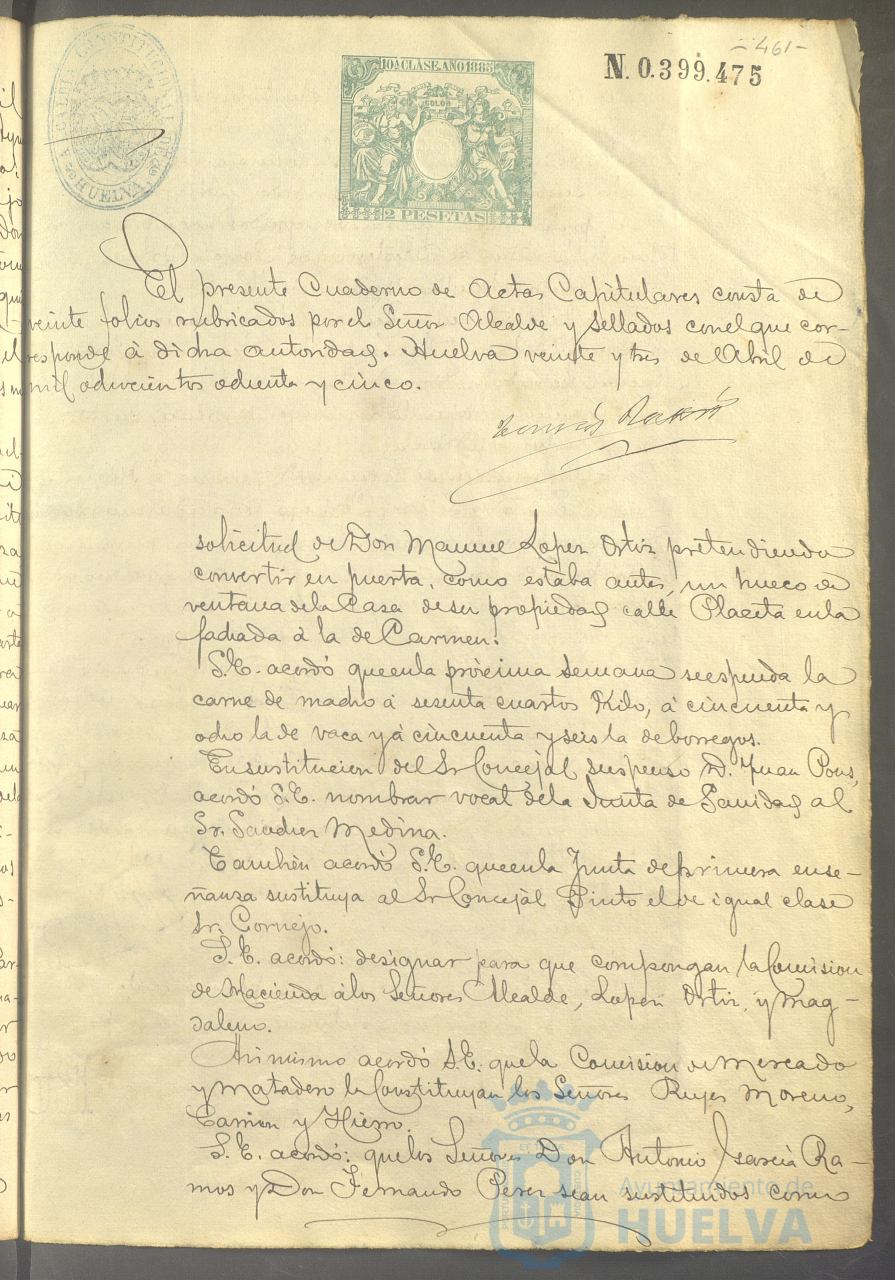 -461-
N. 0.399.475
ALCALDIA CONSTITUCIONAL DE HUELVA
10ª CLASE. AÑO 1885
COLON
2 PESETAS
El presente Cuaderno de Actas Capitulares consta de
veinte folios rubricados por el Señor Alcalde y sellados con el que cor-
responde á dicha autoridad. Huelva veinte y tres de Abril de
mil ochocientos ochenta y cinco.
Tomás
solicitud de Don Manuel Lopez Ortiz pretendiendo
convertir en puerta, como estaba antes, un hueco de
ventana de la Casa de su propiedad calle Placeta en la
fachada á la de Carmen.
S.E. acordó que en la próxima semana se espenda la
carne de macho á sesenta cuartos Kilo, á cincuenta y
ocho la de vaca y á cincuenta y seis la de borregos.
En sustitucion del Sr Concejal suspenso D. Juan Pons,
acordó S.E. nombrar vocal de la Junta de Sanidad al
Sr. Sanchez Medina.
Tambien acordó S.E. que en la Junta de primera ense-
ñanza sustituya al Sr Concejal Pinto el de igual clase
Sr. Cornejo.
S.E. acordó: designar para que compongan la Comision
de Hacienda á los Señores Alcalde, Lopez Ortiz, y Mag-
daleno.
Asi mismo acordó S.E. que la Comision de Mercado
y Matadero la Constituyan los Señores Reyes Moreno,
Carrion y Hierro.
S.E. acordó: que los Señores Don Antonio Garcia Ra-
mos y Don Fernando Perez sean sustituidos como
Ayuntamiento de
HUELVA